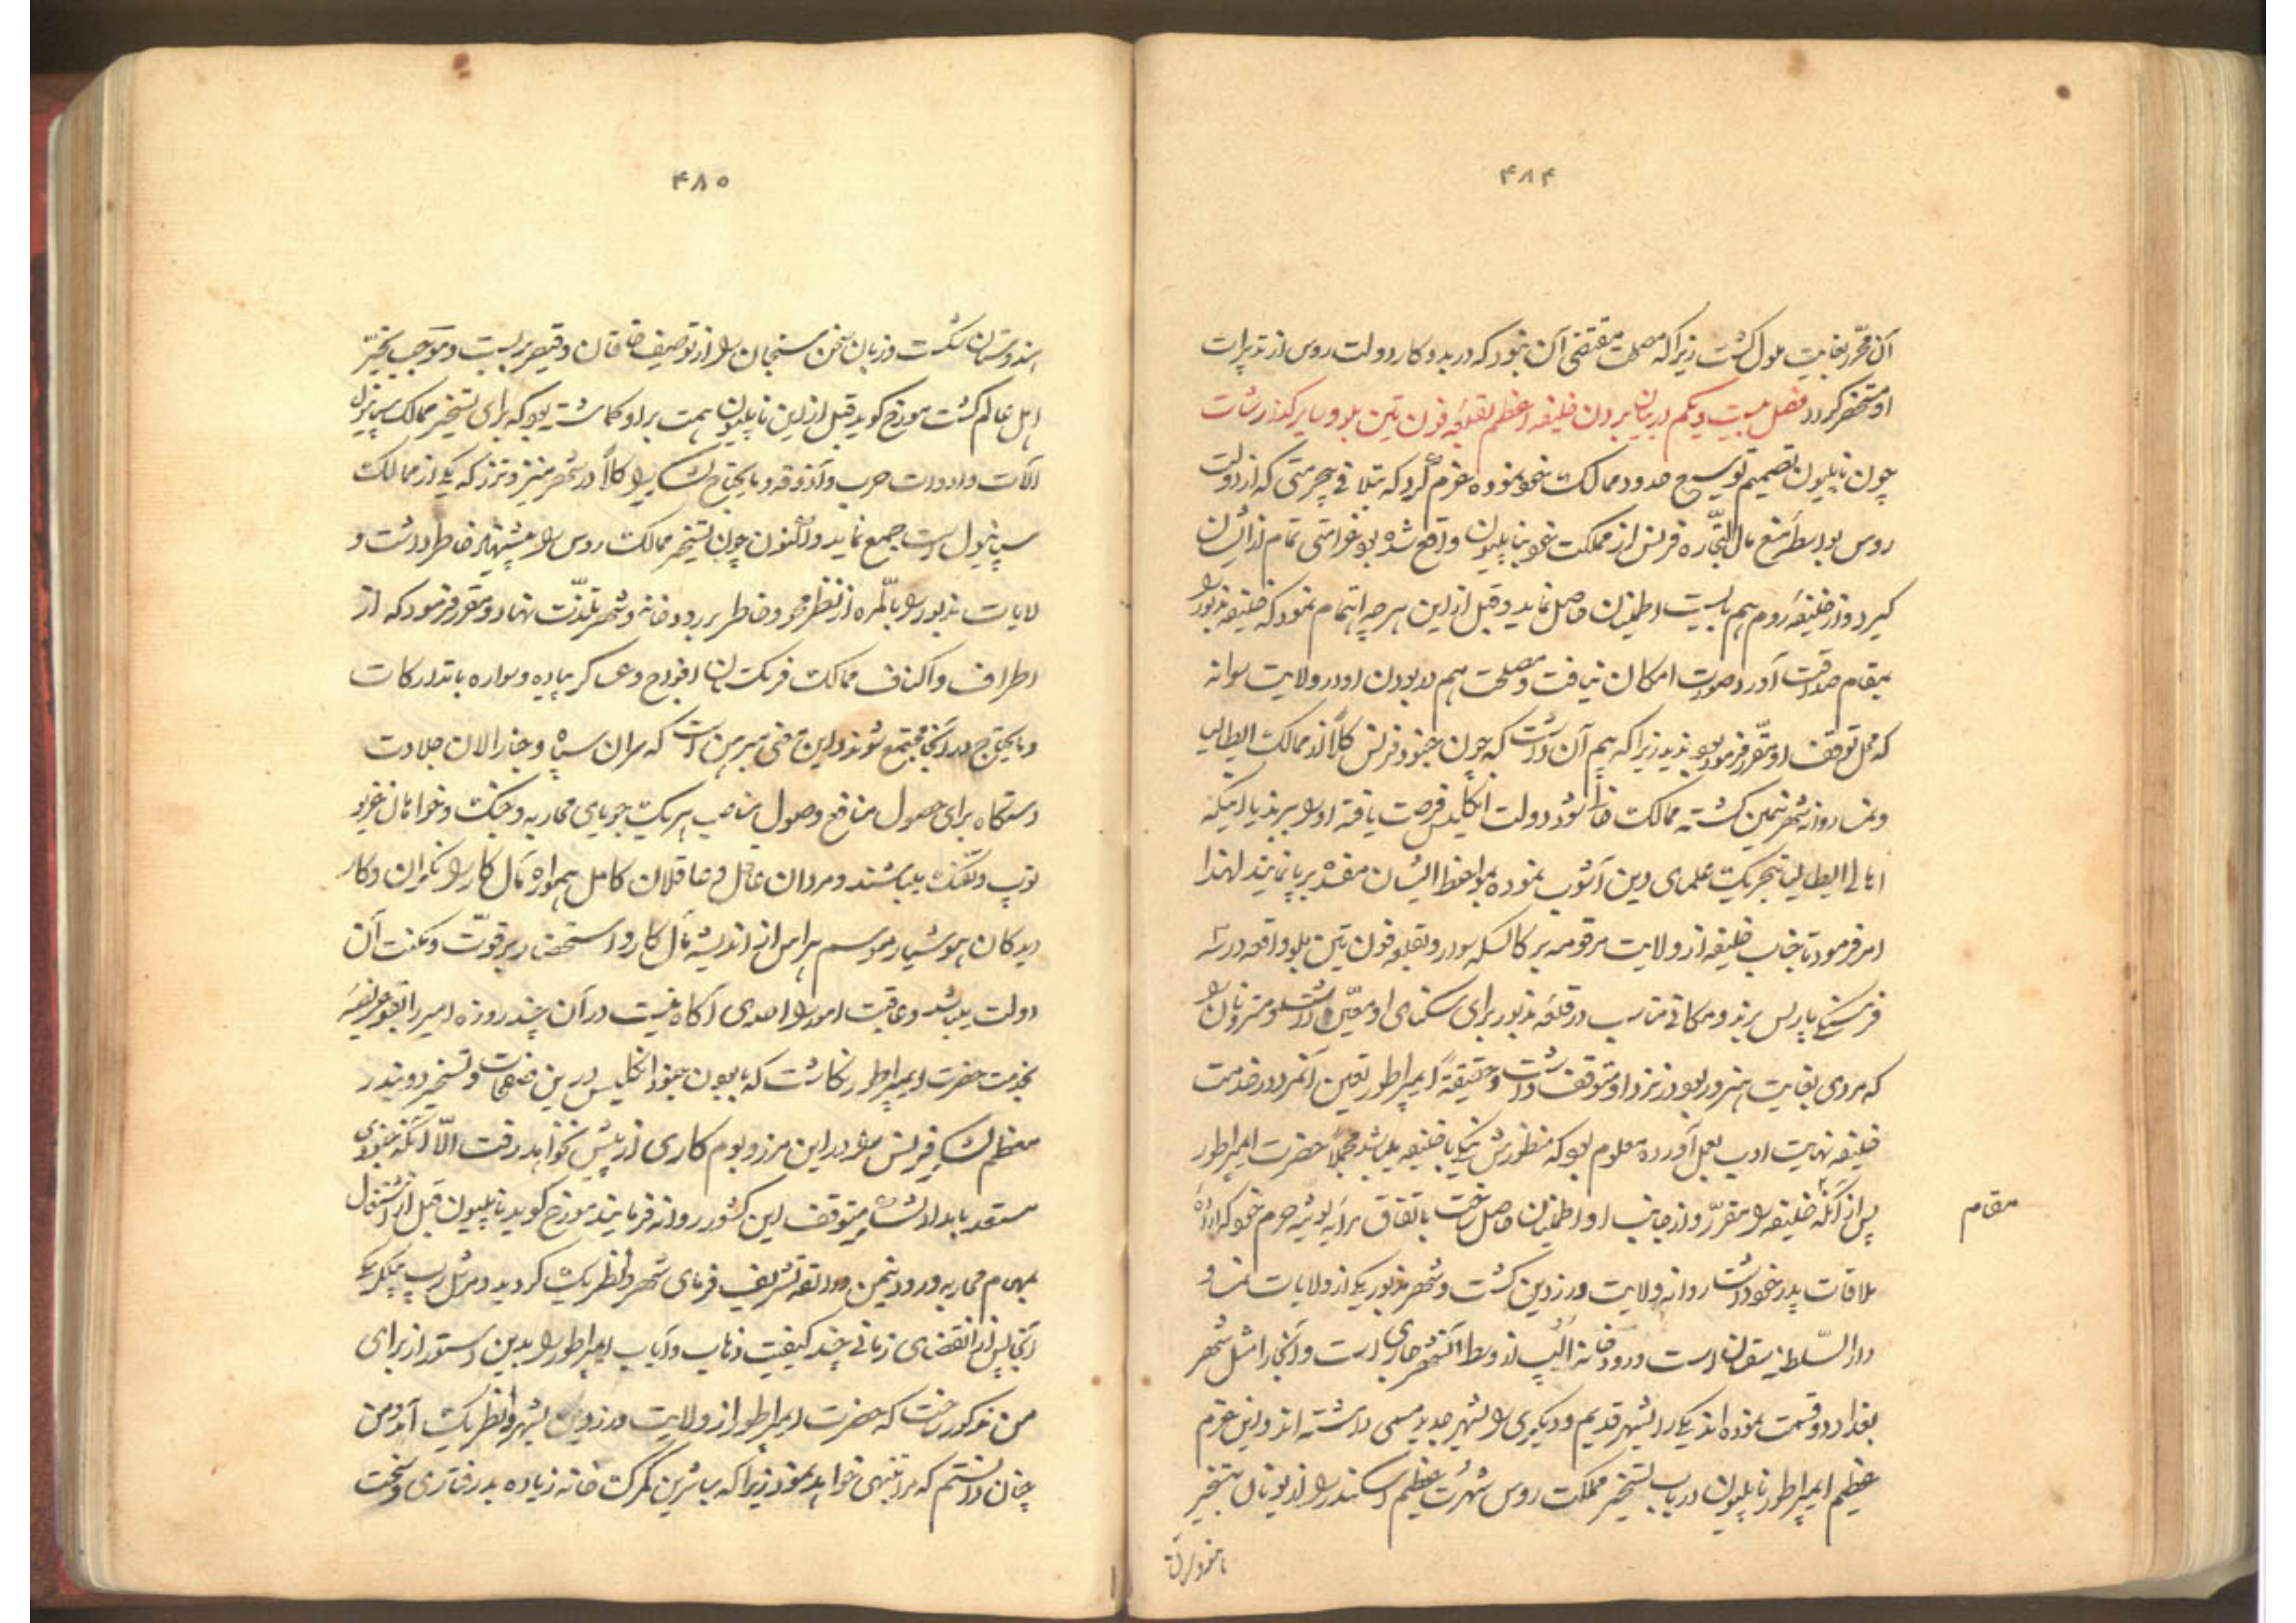 ۴۸۴
آن محرّر بغایت ملول گشت زیرا که مصلحت مقتضی آن نبود که در بدو کار دولت روس از تدبیرات
او مستحضر گردد فصل بیست و یکم در بیان بردن خلیفه اعظم بقلعهٔ فون تین بلو و سایر گذارشات
چون ناپلیون تصمیم توسیع حدود ممالک خود نموده عزم کرد که بتلافی بیحرمتی که از دولت
روس بواسطهٔ منع مال التجاره فرنس از مملکت خود بناپلیون واقع شده بود غرامتی تمام از ایشان
گیرد و از خلیفهٔ روم هم بایست اطمینان حاصل نماید و قبل از این هر چه اهتمام نمود که خلیفه مزبور را
بمقام صداقت آورد صورت امکان نیافت و مصلحت هم در بودن او در ولایت سوانه
که محل توقف او مقرر فرموده بود ندید زیرا که بیم آن داشت که چون جنود فرنس کلاً از ممالک ایطالیا
و نمسا روانه شهر نیمن گشته ممالک خالی شود دولت انگلیس فرصت یافته او را ببرند یا اینکه
اهالی ایطالیا بتحریک علمای دین آشوب نموده بمواعظ ایشان مفسده برپا نمایند لهذا
امر فرمود تا جناب خلیفه از ولایت مرقومه بر کالسکه سوار و بقلعه فون تین بلو واقعه در سه
فرسنگی پاریس برند و مکانی مناسب در قلعهٔ مزبور برای سکنای او معین داشته و مترونان را
که مردی بغایت هنرور بود در نزد او متوقف داشت و حقیقةً ایمپراطور تعیین آنمرد در خدمت
خلیفه نهایت ادب بعمل آورده معلوم بود که منظورش نیکی با خلیفه میباشد مجملاً حضرت ایمپراطور
پس از آنکه خلیفه را مقرّر و از جانب او اطمینان حاصل ساخت باتفاق برایه لوئیزه حرم خود که اراده
مقام
ملاقات پدر خود داشت روانه ولایت درزدین گشت و شهر مزبور یکی از ولایات نمسا و
دار السلطنهٔ سقسان است و رودخانه الب از وسط آنشهر جاری است و آنجا را مثل شهر
بغداد دو قسمت نموده اند یکی را شهر قدیم و دیگری را بشهر جدید مسمی داشته اند و این عزم
عظیم ایمپراطور ناپلیون در باب تسخیر مملکت روس شهرت عظیم اسکندر را از یونان بتسخیر
هندوستان
۴۸۵
هندوستان شکست و زبان سخن سنجان را از توصیف خاقان و قیصر بر بست و موجب تحیّر
اهل عالم گشت مورخ گوید قبل از این ناپلیون همت بر او گماشته بود که برای تسخیر ممالک سپانیول
آلات و ادوات حرب و آذوقه و مایحتاج لشکر را کلاً در شهر منیز و ترز که یکی از ممالک
سپانیول است جمع نماید و اکنون چون تسخیر ممالک روس را پیشنهاد خاطر داشت و
ولایات مزبور را بالمره از نظر محو و خاطر بر رودخانه و شهر تلذت نهاد و مقرر فرمود که از
اطراف و اکناف ممالک فرنگستان افواج و عساکر پیاده و سواره با تدارکات
و مایحتاج در آنجا مجتمع شوند و این معنی مبرهن است که سران سپاه و جنارالان جلادت
دستگاه برای حصول منافع و وصول مناصب هر یک جویای محاربه و جنگ و خواهان غریو
توپ و تفنگ میباشند و مردان عاقل و عاقلان کامل همواره مآل کار را نگران و کار
دیدگان هوشیار موسم هراس از اندیشه مآل کار و استحضار بر قوّت و مکنت آن
دولت میباشد و عاقبت امور را احدی آگاه نیست در آن چند روزه امیر البحر عریضه
بخدمت حضرت ایمپراطور نگاشت که با بودن جنود انگلیس در این صفحات و تسخیر دو بندر
معظم لشکر فرنس را در این مرز و بوم کاری از پیش نخواهد رفت الّا آنکه جنودی
مستعد بامداد لشکر متوقف این کشور روانه فرمایند مورخ گوید ناپلیون قبل از اشتغال
بمهام محاربه و ورود نیمن واقعه تشریف فرمای شهر وانطریک گردید و مرشل رپ میگوید که
آنجا پس از انقضای زمانی چند کیفیت ذهاب و ایاب ایمپراطور را بدین دستور از برای
من مذکور ساخت که حضرت ایمپراطور از ولایت درزدین بشهر وانطریک آمد و من
چنان دانستم که مرا تنبیهی خواهد نمود زیرا که مباشرین گمرک خانه زیاده بدرفتاری و سخت